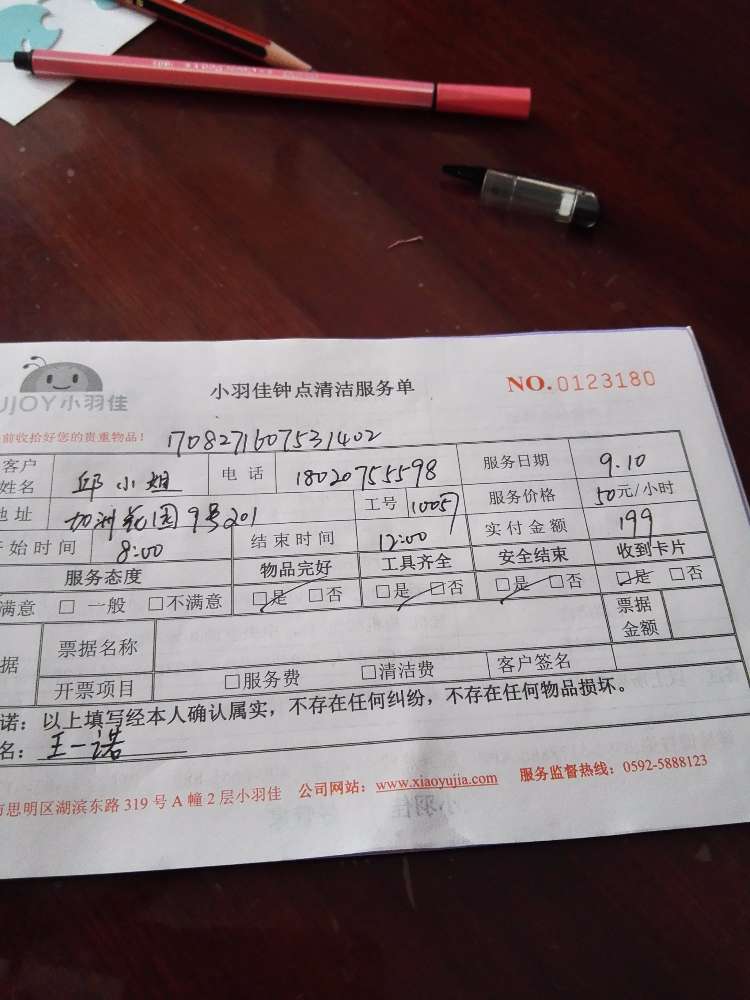 UJOY小羽佳
小羽佳钟点清洁服务单
NO.0123180
前收拾好您的贵重物品！
170827160753140​2
客户姓名 邱小姐 电话 18020755598 服务日期 9.10
地址 加洲花园9号201 工号 服务价格 50元/小时
开始时间 8:00 结束时间 12:00 实付金额 199
服务态度 物品完好 工具齐全 安全结束 收到卡片
满意 □ 一般 □不满意 □是 □否 □是 □否 □是 □否 □是 □否
据 票据名称 票据金额
开票项目 □服务费 □清洁费 客户签名
诺：以上填写经本人确认属实，不存在任何纠纷，不存在任何物品损坏。
名：王一诺
市思明区湖滨东路319号A幢2层小羽佳 公司网站：www.xiaoyujia.com 服务监督热线：0592-5888123